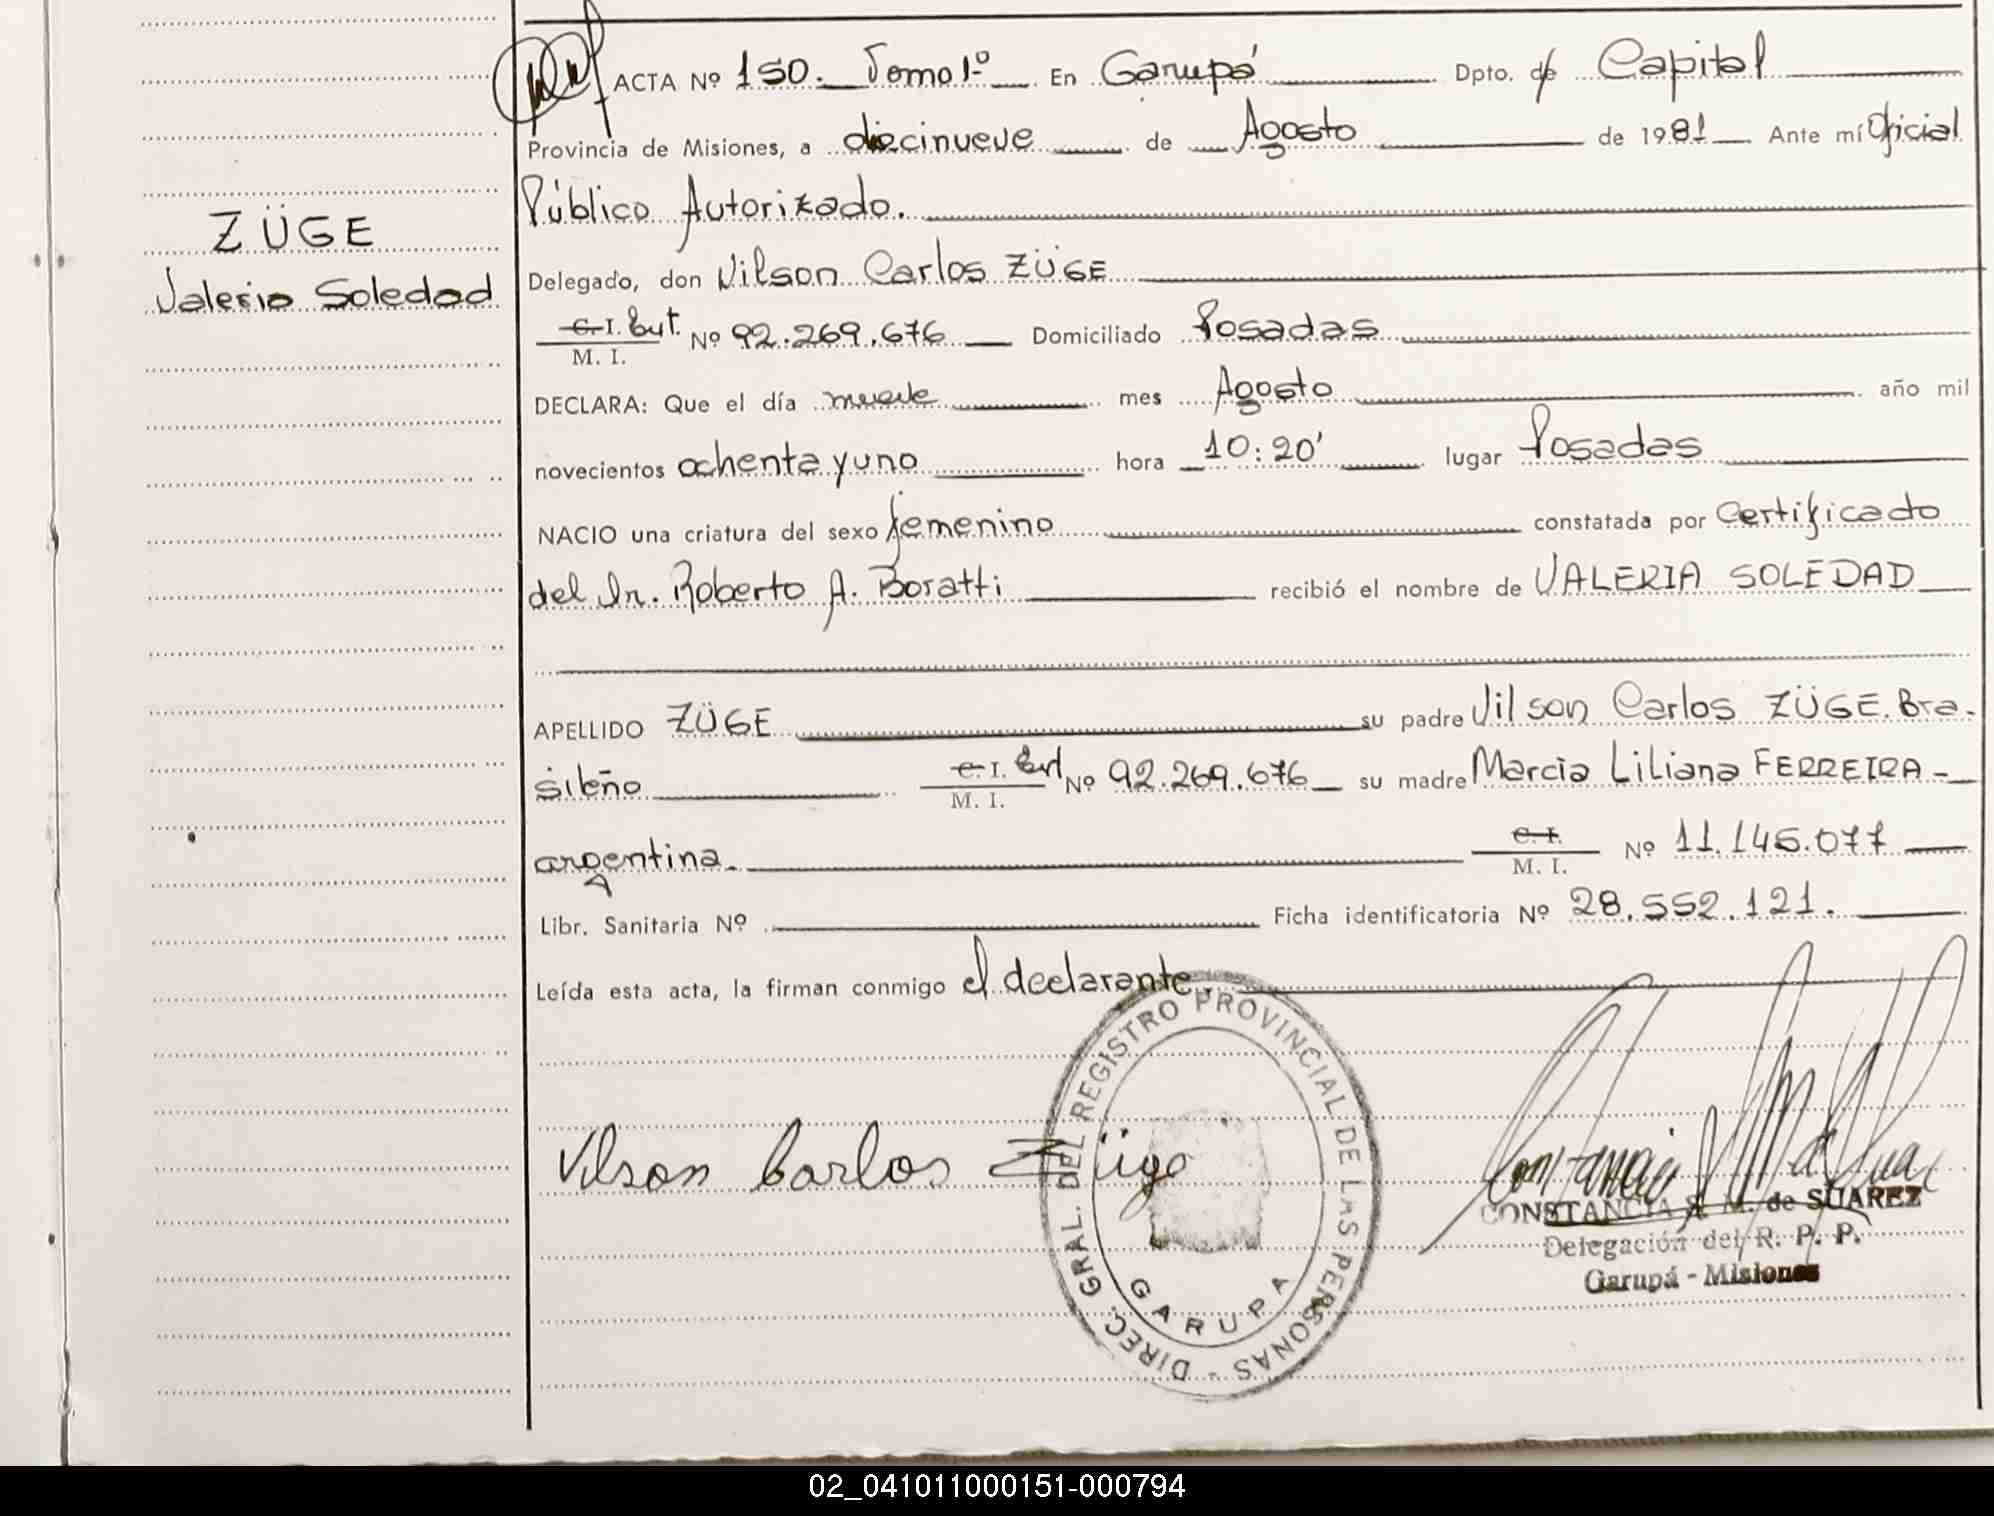 ACTA Nº 150. Tomo 1º En Garupá Dpto. de Capital
Provincia de Misiones, a diecinueve de Agosto de 1981 Ante mí Oficial
Público Autorizado.
ZÜGE
Valeria Soledad
Delegado, don Vilson Carlos ZÜGE
C. I. Ext. Nº 92.269.676 Domiciliado Posadas
M. I.
DECLARA: Que el día nueve mes Agosto año mil
novecientos ochenta y uno hora 10:20' lugar Posadas
NACIO una criatura del sexo femenino constatada por Certificado
del Dr. Roberto A. Boratti recibió el nombre de VALERIA SOLEDAD
APELLIDO ZÜGE su padre Vilson Carlos ZÜGE. Bra-
sileño C. I. Ext Nº 92.269.676 su madre Marcia Liliana FERREIRA-
M. I.
argentina. C. I. Nº 11.145.077
M. I.
Libr. Sanitaria Nº Ficha identificatoria Nº 28.552.121.
Leída esta acta, la firman conmigo el declarante.
Vilson Carlos Züge
DIREC. GRAL. DEL REGISTRO PROVINCIAL DE LAS PERSONAS -
GARUPA
CONSTANCIA M. de SUAREZ
Delegación del R. P. P.
Garupá - Misiones
02_041011000151-000794